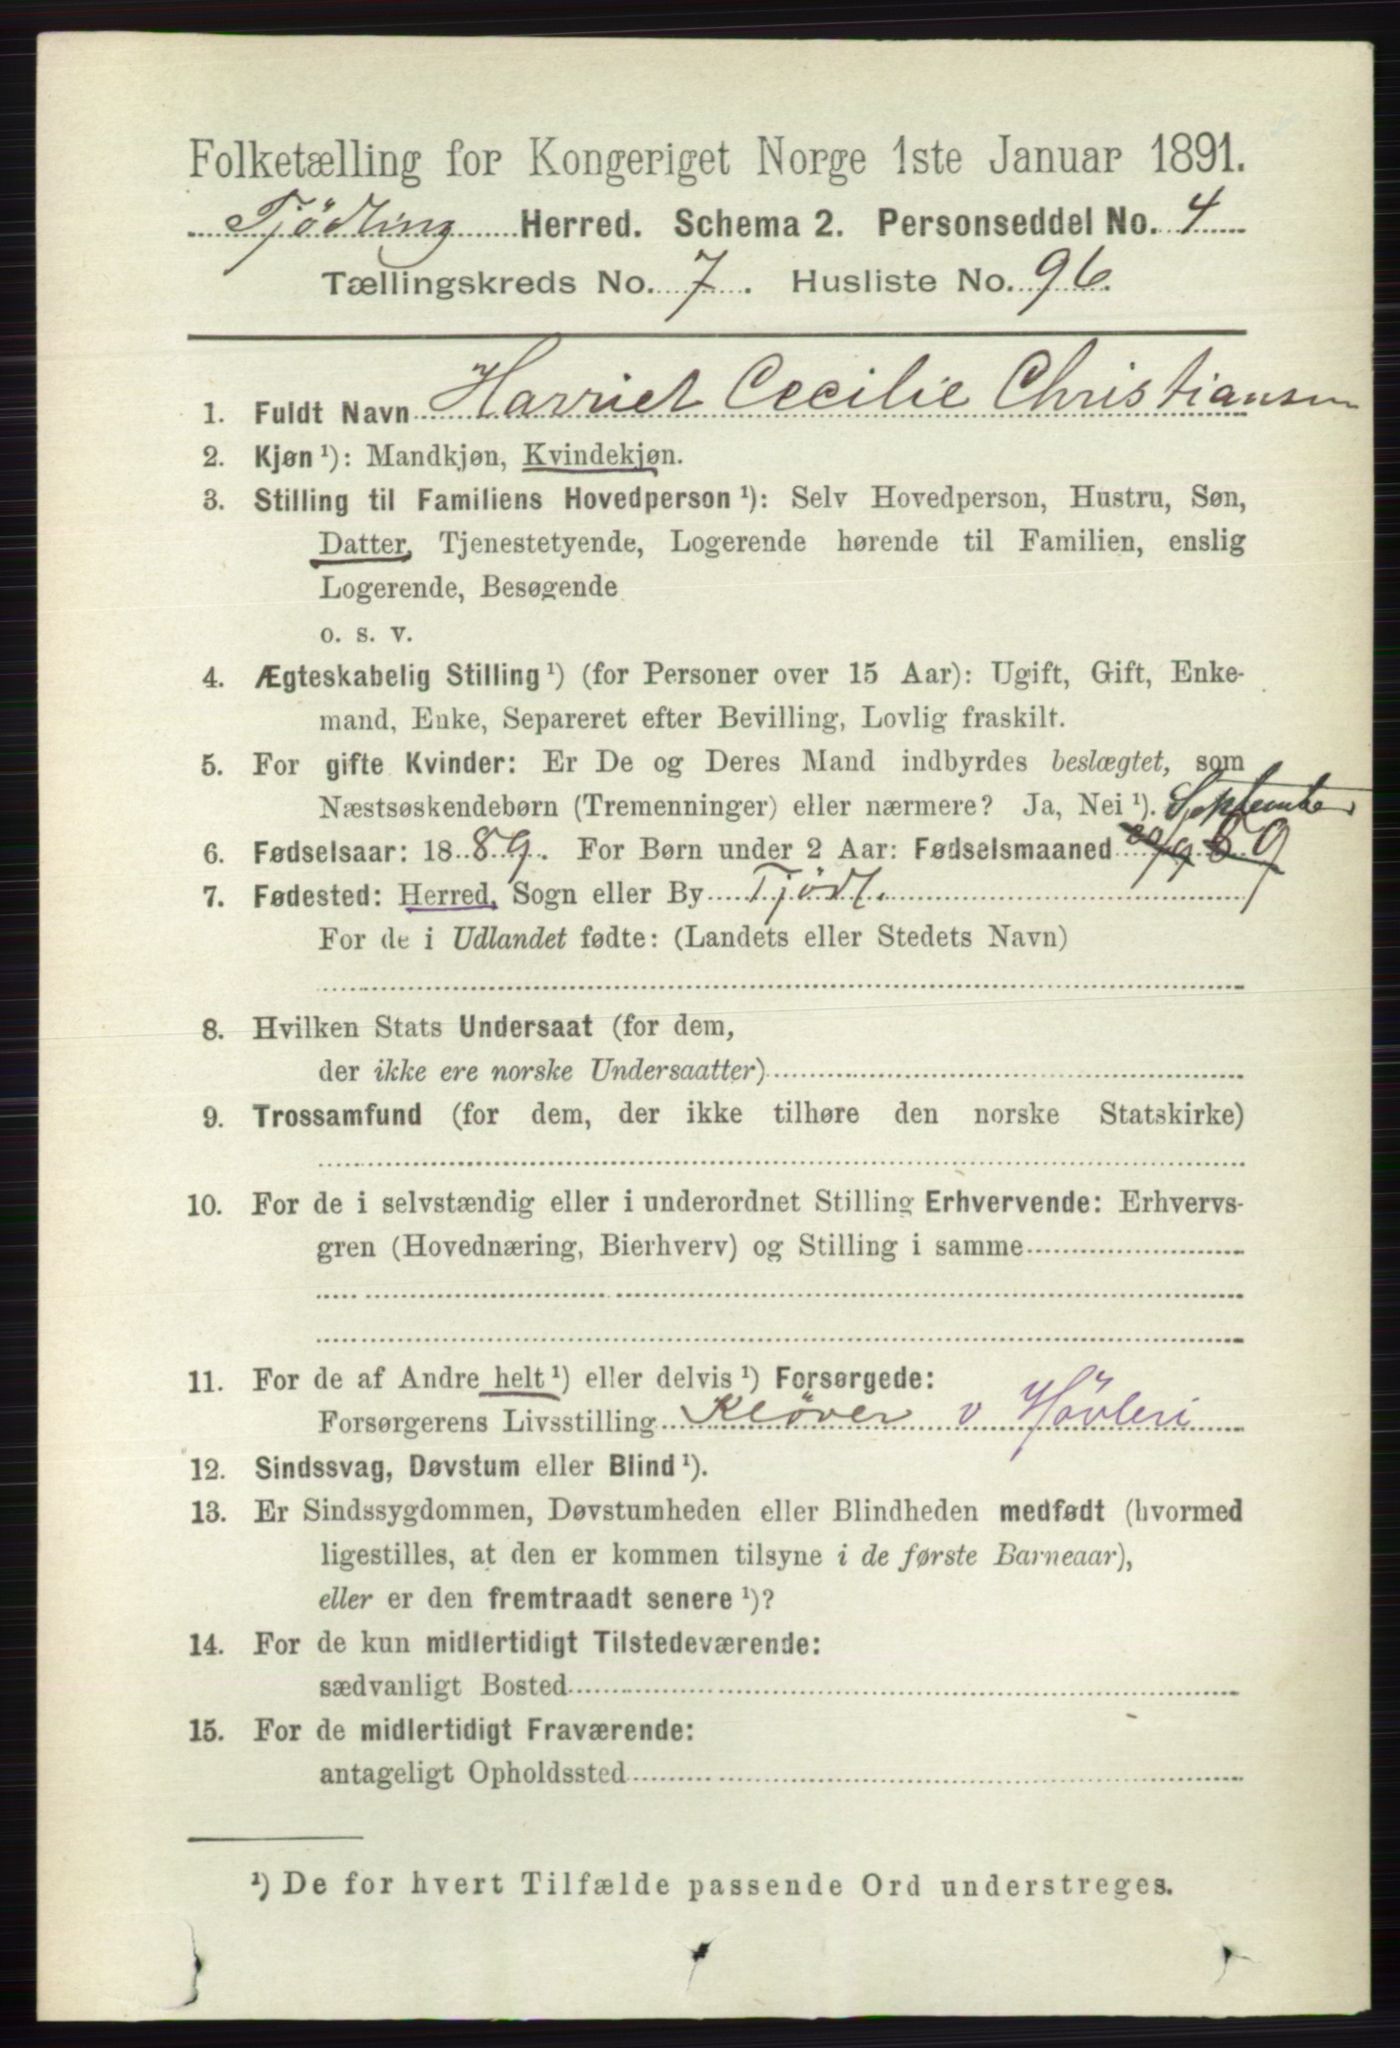 Folketælling for Kongeriget Norge 1ste Januar 1891.
Tjödling Herred. Schema 2. Personseddel No. 4
Tællingskreds No. 7. Husliste No. 96.
1. Fuldt Navn Harriet Cecilie Christiansen
2. Kjøn ¹): Mandkjøn, Kvindekjøn.
3. Stilling til Familiens Hovedperson ¹): Selv Hovedperson, Hustru, Søn,
Datter, Tjenestetyende, Logerende hørende til Familien, enslig
Logerende, Besøgende
o. s. v.
4. Ægteskabelig Stilling ¹) (for Personer over 15 Aar): Ugift, Gift, Enke-
mand, Enke, Separeret efter Bevilling, Lovlig fraskilt.
5. For gifte Kvinder: Er De og Deres Mand indbyrdes beslægtet, som
Næstsøskendebørn (Tremenninger) eller nærmere? Ja, Nei ¹). September
6. Fødselsaar: 1889. For Børn under 2 Aar: Fødselsmaaned 20/9 89
7. Fødested: Herred, Sogn eller By Tjödl.
For de i Udlandet fødte: (Landets eller Stedets Navn)
8. Hvilken Stats Undersaat (for dem,
der ikke ere norske Undersaatter)
9. Trossamfund (for dem, der ikke tilhøre den norske Statskirke)
10. For de i selvstændig eller i underordnet Stilling Erhvervende: Erhvervs-
gren (Hovednæring, Bierhverv) og Stilling i samme
11. For de af Andre helt ¹) eller delvis ¹) Forsørgede:
Forsørgerens Livsstilling Klöver v Hövleri
12. Sindssvag, Døvstum eller Blind ¹).
13. Er Sindssygdommen, Døvstumheden eller Blindheden medfødt (hvormed
ligestilles, at den er kommen tilsyne i de første Barneaar),
eller er den fremtraadt senere ¹)?
14. For de kun midlertidigt Tilstedeværende:
sædvanligt Bosted
15. For de midlertidigt Fraværende:
antageligt Opholdssted
¹) De for hvert Tilfælde passende Ord understreges.